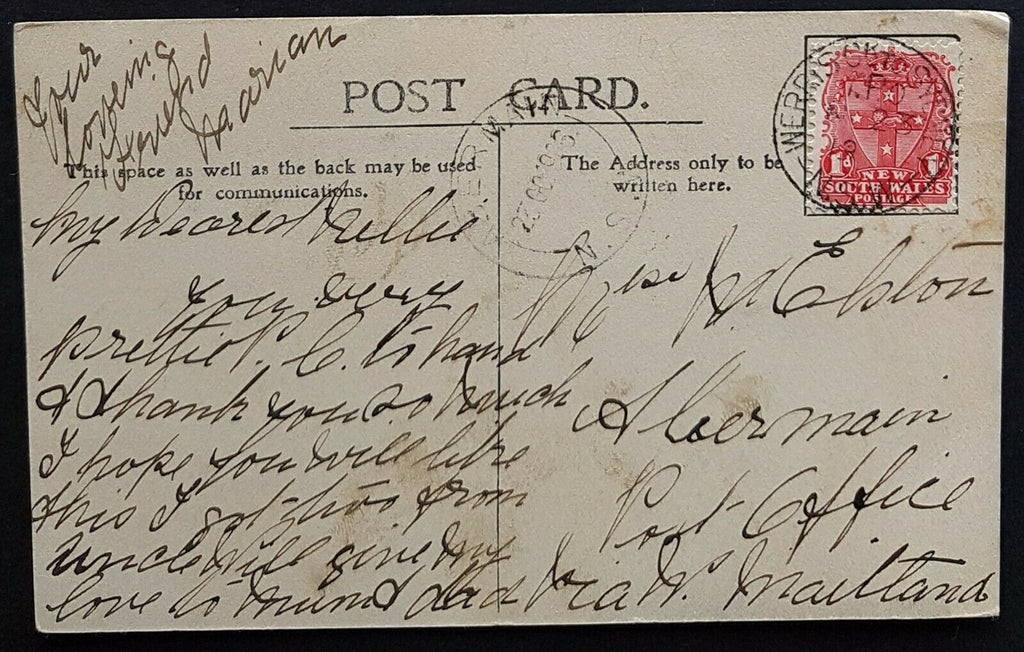 Your
Loveing
Friend
Marian
POST CARD.
This space as well as the back may be used
for communications.
The Address only to be
written here.
1d NEW 1d
SOUTH WALES
POSTAGE
My Dearest Nellie
You very
prettie P. C. to hand
& I thank you so much
I hope you will like
this I got two from
uncle Will give my
love to Mum & dad
Miss N Ebston
Abermain
Post Office
Via W. Maitland